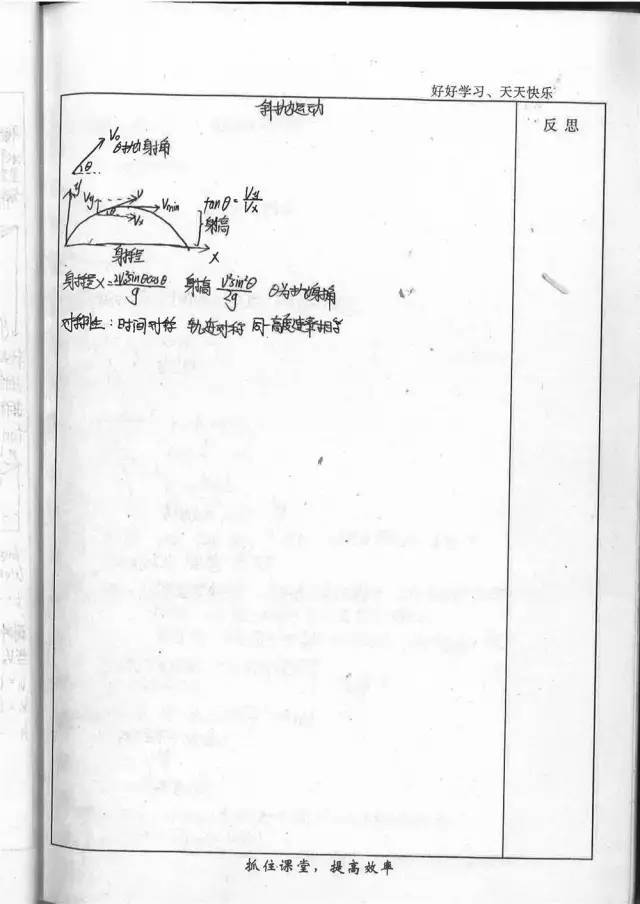 好好学习、天天快乐
斜抛运动
反思
V₀
θ抛射角
θ
y
Vy V Vmin tanθ=Vy/Vx
θ Vx 射高
射程 X
射程X=2V₀²sinθcosθ/g 射高 V₀²sin²θ/2g θ为抛射角
对称性:时间对称 轨迹对称 同一高度速率相等
抓住课堂,提高效率